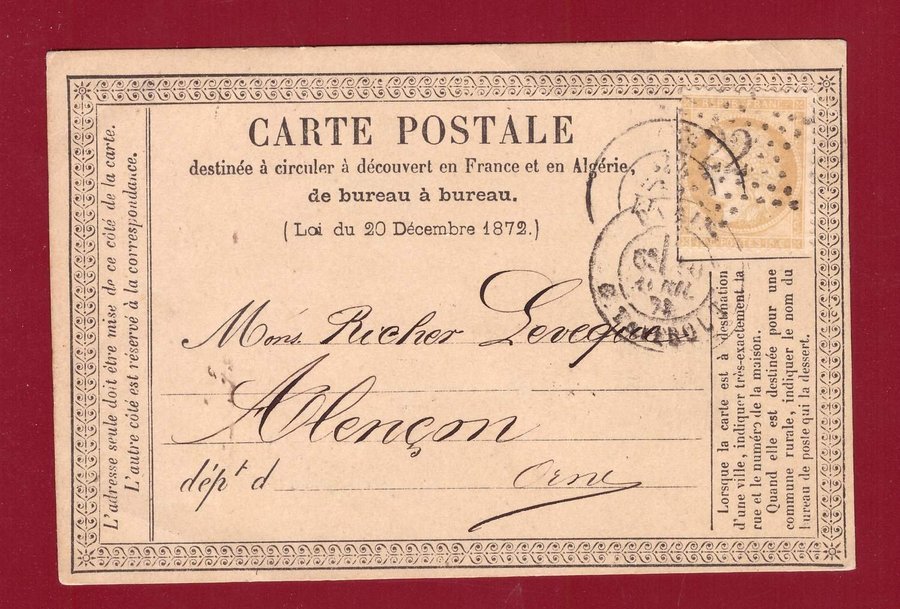 CARTE POSTALE
destinée à circuler à découvert en France et en Algérie,
de bureau à bureau.
(Loi du 20 Décembre 1872.)
L'adresse seule doit être mise de ce côté de la carte.
L'autre côté est réservé à la correspondance.
22
AVRIL
Mons. Richer Leveque
Alençon
dépt d Orne
Lorsque la carte est à destination
d'une ville, indiquer très-exactement la
rue et le numéro de la maison.
Quand elle est destinée pour une
commune rurale, indiquer le nom du
bureau de poste qui la dessert.